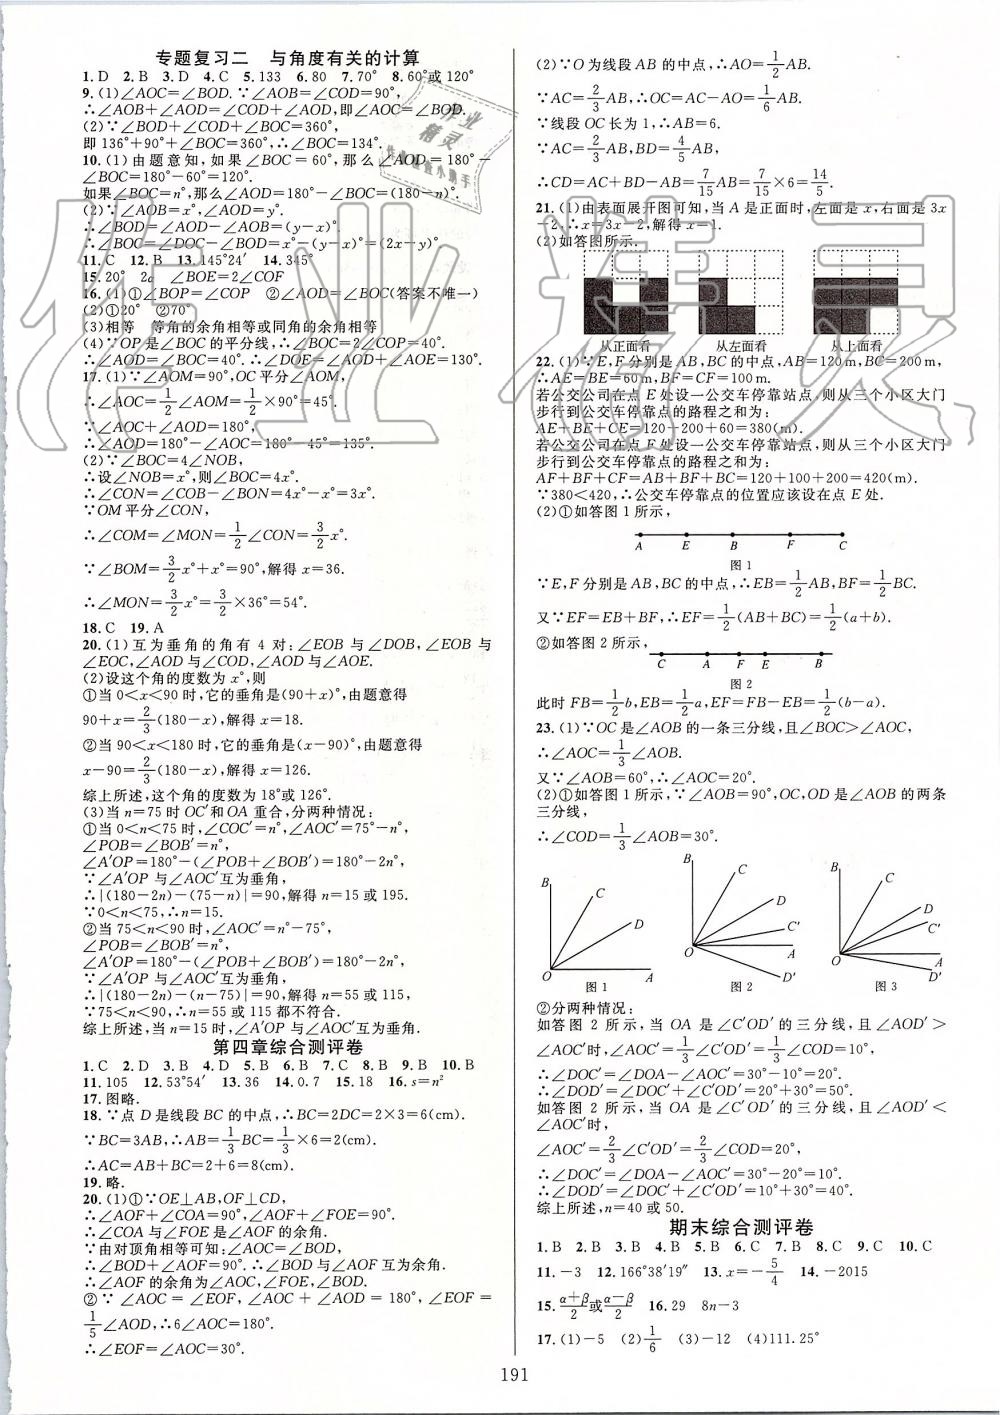 专题复习二　与角度有关的计算
1. D　2. B　3. D　4. C　5. 133　6. 80　7. 70°　8. 60°或120°
9. (1)∠AOC=∠BOD. ∵∠AOB=∠COD=90°,
∴∠AOB+∠AOD=∠COD+∠AOD,即∠AOC=∠BOD.
(2)∵∠BOD+∠COD+∠BOC=360°,
即 136°+90°+∠BOC=360°,∴∠BOC=134°.
10. (1)由题意知,如果∠BOC=60°,那么∠AOD=180°-
∠BOC=180°-60°=120°.
如果∠BOC=n°,那么∠AOD=180°-∠BOC=(180-n)°.
(2)∵∠AOB=x°,∠AOD=y°.
∴∠BOD=∠AOD-∠AOB=(y-x)°.
∴∠BOC=∠DOC-∠BOD=x°-(y-x)°=(2x-y)°.
11. C　12. B　13. 145°24′　14. 345°
15. 20°　2α　∠BOE=2∠COF
16. (1)①∠BOP=∠COP　②∠AOD=∠BOC(答案不唯一)
(2)①20°　②70°
(3)相等　等角的余角相等或同角的余角相等
(4)∵OP 是∠BOC的平分线,∴∠BOC=2∠COP=40°.
∴∠AOD=∠BOC=40°. ∴∠DOE=∠AOD+∠AOE=130°.
17. (1)∵∠AOM=90°,OC平分∠AOM,
∴∠AOC=1/2∠AOM=1/2×90°=45°.
∵∠AOC+∠AOD=180°,
∴∠AOD=180°-∠AOC=180°-45°=135°.
(2)∵∠BOC=4∠NOB,
∴设∠NOB=x°,则∠BOC=4x°.
∴∠CON=∠COB-∠BON=4x°-x°=3x°.
∵OM平分∠CON,
∴∠COM=∠MON=1/2∠CON=3/2x°.
∵∠BOM=3/2x°+x°=90°,解得 x=36.
∴∠MON=3/2x°=3/2×36°=54°.
18. C　19. A
20. (1)互为垂角的角有 4 对:∠EOB与∠DOB,∠EOB与
∠EOC,∠AOD与∠COD,∠AOD与∠AOE.
(2)设这个角的度数为 x°,则
①当 0<x<90时,它的垂角是(90+x)°,由题意得
90+x=2/3(180-x),解得 x=18.
②当 90<x<180 时,它的垂角是(x-90)°,由题意得
x-90=2/3(180-x),解得 x=126.
综上所述,这个角的度数为 18°或126°.
(3)当 n=75 时 OC′和OA 重合,分两种情况:
①当 0<n<75 时,∠COC′=n°,∠AOC′=75°-n°,
∠POB=∠BOB′=n°,
∠A′OP=180°-(∠POB+∠BOB′)=180°-2n°,
∵∠A′OP 与∠AOC′互为垂角,
∴|(180-2n)-(75-n)|=90,解得 n=15 或 195.
∵0<n<75,∴n=15.
②当 75<n<90 时,∠AOC′=n°-75°,
∠POB=∠BOB′=n°,
∠A′OP=180°-(∠POB+∠BOB′)=180°-2n°.
∵∠A′OP 与∠AOC′互为垂角,
∴|(180-2n)-(n-75)|=90,解得 n=55 或 115,
∵75<n<90,∴n=55 或 115都不符合.
综上所述,当 n=15 时,∠A′OP 与∠AOC′互为垂角.
第四章综合测评卷
1. C　2. D　3. B　4. D　5. B　6. B　7. C　8. B　9. B　10. B
11. 105　12. 53°54′　13. 36　14. 0. 7　15. 18　16. s=n²
17. 图略.
18. ∵点 D是线段 BC 的中点,∴BC=2DC=2×3=6(cm).
∵BC=3AB,∴AB=1/3BC=1/3×6=2(cm).
∴AC=AB+BC=2+6=8(cm).
19. 略.
20. (1)①∵OE⊥AB,OF⊥CD,
∴∠AOF+∠COA=90°,∠AOF+∠FOE=90°.
∴∠COA与∠FOE 是∠AOF的余角.
∵由对顶角相等可知:∠AOC=∠BOD,
∴∠BOD+∠AOF=90°. ∴∠BOD与∠AOF互为余角.
∴∠AOF的余角为∠AOC,∠FOE,∠BOD.
②∵∠AOC=∠EOF,∠AOC+∠AOD=180°,∠EOF=
1/5∠AOD,∴6∠AOC=180°.
∴∠EOF=∠AOC=30°.
(2)∵O为线段 AB 的中点,∴AO=1/2AB.
∵AC=2/3AB,∴OC=AC-AO=1/6AB.
∵线段 OC长为 1,∴AB=6.
∵AC=2/3AB,BD=4/5AB,
∴CD=AC+BD-AB=7/15AB=7/15×6=14/5.
21. (1)由表面展开图可知,当 A 是正面时,左面是 x,右面是 3x
-2,∴x=3x-2,解得 x=1.
(2)如答图所示.
从正面看　从左面看　从上面看
22. (1)∵E,F 分别是 AB,BC的中点,AB=120 m,BC=200 m,
∴AE=BE=60 m,BF=CF=100 m.
若公交公司在点 E 处设一公交车停靠站点,则从三个小区大门
步行到公交车停靠点的路程之和为:
AE+BE+CE=120+200+60=380(m).
若公交公司在点 F处设一公交车停靠站点,则从三个小区大门
步行到公交车停靠点的路程之和为:
AF+BF+CF=AB+BF+BC=120+100+200=420(m).
∵380<420,∴公交车停靠点的位置应该设在点 E处.
(2)①如答图 1所示,
A　E　B　F　C
图 1
∵E,F 分别是 AB,BC的中点,∴EB=1/2AB,BF=1/2BC.
又∵EF=EB+BF,∴EF=1/2(AB+BC)=1/2(a+b).
②如答图 2所示,
C　A　F　E　B
图 2
此时 FB=1/2b,EB=1/2a,EF=FB-EB=1/2(b-a).
23. (1)∵OC是∠AOB的一条三分线,且∠BOC>∠AOC,
∴∠AOC=1/3∠AOB.
又∵∠AOB=60°,∴∠AOC=20°.
(2)①如答图 1 所示,∵∠AOB=90°,OC,OD 是∠AOB 的两条
三分线,
∴∠COD=1/3∠AOB=30°.
B　C　D　O　A
图 1
B　C　D　C′　O　A　D′
图 2
B　C　D　C′　O　A　D′
图 3
②分两种情况:
如答图 2 所示,当 OA 是∠C′OD′的三分线,且∠AOD′>
∠AOC′时,∠AOC′=1/3∠C′OD′=1/3∠COD=10°,
∴∠DOC′=∠DOA-∠AOC′=30°-10°=20°.
∴∠DOD′=∠DOC′+∠C′OD′=20°+30°=50°.
如答图 2 所示,当 OA 是∠C′OD′的三分线,且∠AOD′<
∠AOC′时,
∠AOC′=2/3∠C′OD′=2/3∠COD=20°,
∴∠DOC′=∠DOA-∠AOC′=30°-20°=10°.
∴∠DOD′=∠DOC′+∠C′OD′=10°+30°=40°.
综上所述,n=40 或 50.
期末综合测评卷
1. B　2. B　3. B　4. B　5. B　6. C　7. B　8. C　9. C　10. C
11. -3　12. 166°38′19″　13. x=-5/4　14. -2015
15. (α+β)/2或(α-β)/2　16. 29　8n-3
17. (1)-5　(2)1/6　(3)-12　(4)111.25°
191
作业精灵